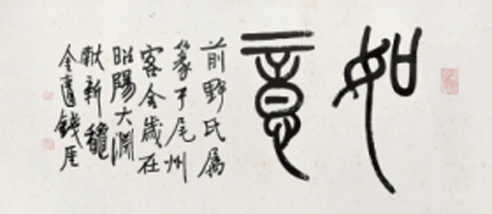 如意
前野氏属
篆于尾州
客舍歲在
昭陽大淵
献新穐
金匱錢厓